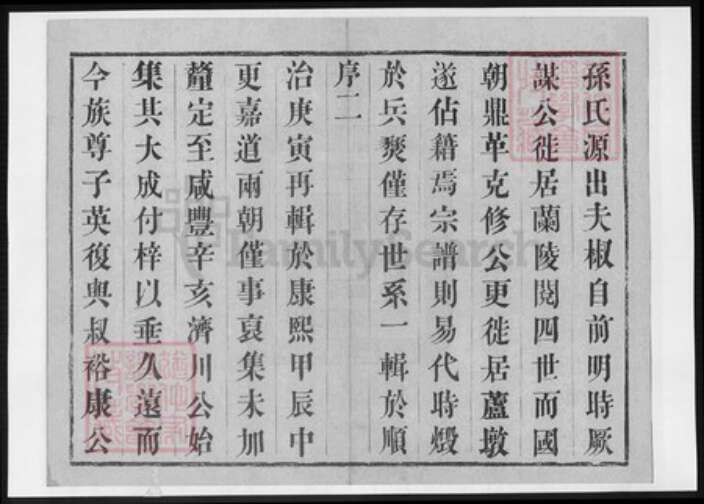 孫氏源出夫椒自前明時厥
謀公徙居蘭陵閱四世而國
朝鼎革克修公更徙居蘆墩
遂佔籍焉宗譜則易代時燬
於兵燹僅存世系一輯於順
序二
治庚寅再輯於康熙甲辰中
更嘉道兩朝僅事裒集未加
釐定至咸豐辛亥濟川公始
集其大成付梓以垂久遠而
今族尊子英復與叔裕康公
FamilySearch